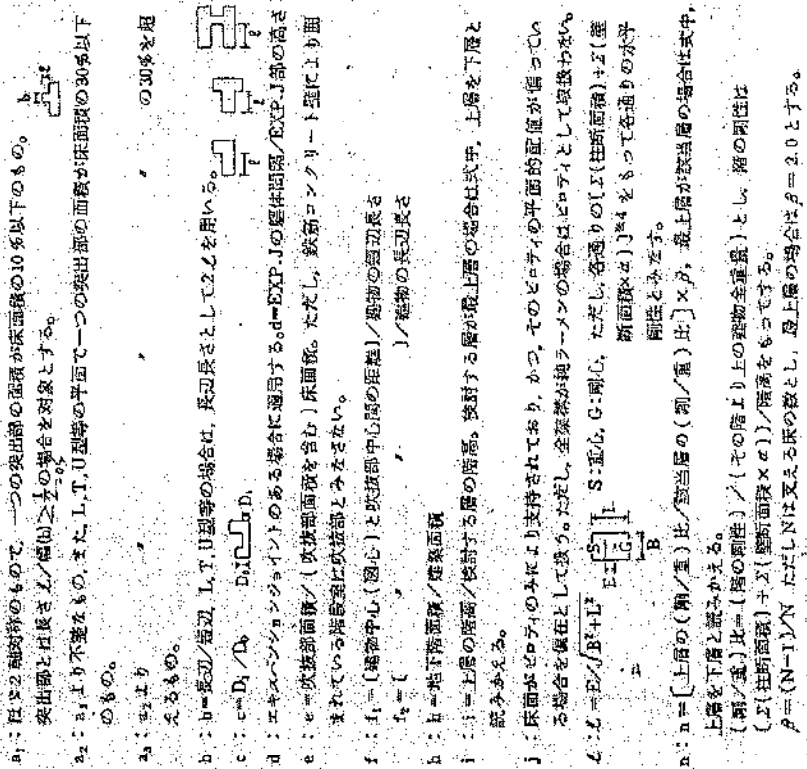 a₁：ほぼ2軸対称のもので、一つの突出部の面積が床面積の10％以下のもの。
突出部とは長さℓ/幅(b)≧1/2の場合を対象とする。
=0.5
a₂：a₁より不整なもの、また、L、T、U型等の平面で一つの突出部の面積が床面積の30％以下
のもの。
a₃：a₂より 〃 〃 〃 の30％を超
えるもの。
b：b=長辺/短辺、L、T、U型等の場合は、長辺長さとして2ℓを用いる。
c：c=D₁/D₀ D₀ D₁
d：エキスパンションジョイントのある場合に適用する。d=EXP.Jの躯体間隔/EXP.J部の高さ
e：e=吹抜部面積/(吹抜部面積を含む)床面積。ただし、鉄筋コンクリート壁により囲
まれている階段室は吹抜部とみなさない。
f：f₁=(建物中心(図心)と吹抜部中心間の距離)/建物の短辺長さ
f₂=( 〃 〃 )/建物の長辺長さ
h：h=地下階面積/建築面積
i：i=上層の階高/検討する層の階高。検討する層が最上層の場合は式中、上層を下層と
読みかえる。
j：床面がピロティのみにより支持されており、かつ、そのピロティの平面的配置が偏ってい
る場合を偏在として扱う。ただし、全架構が純ラーメンの場合はピロティとして取扱わない。
ℓ：ℓ=E/√B²+L² E S G L B S：重心、G：剛心、ただし、各通りの〔Σ(柱断面積)+Σ(壁
断面積×α)〕※4をもって各通りの水平
剛性とみなす。
n：n=〔上層の(剛/重)比/該当層の(剛/重)比〕×β、最上層が該当層の場合は式中、
上層を下層と読みかえる。
(剛/重)比=(階の剛性)/(その階より上の建物全重量)とし、階の剛性は
(Σ(柱断面積)+Σ(壁断面積×α))/階高をもってする。
β=(N-1)/N ただしNは支える床の数とし、最上層の場合はβ=2.0とする。